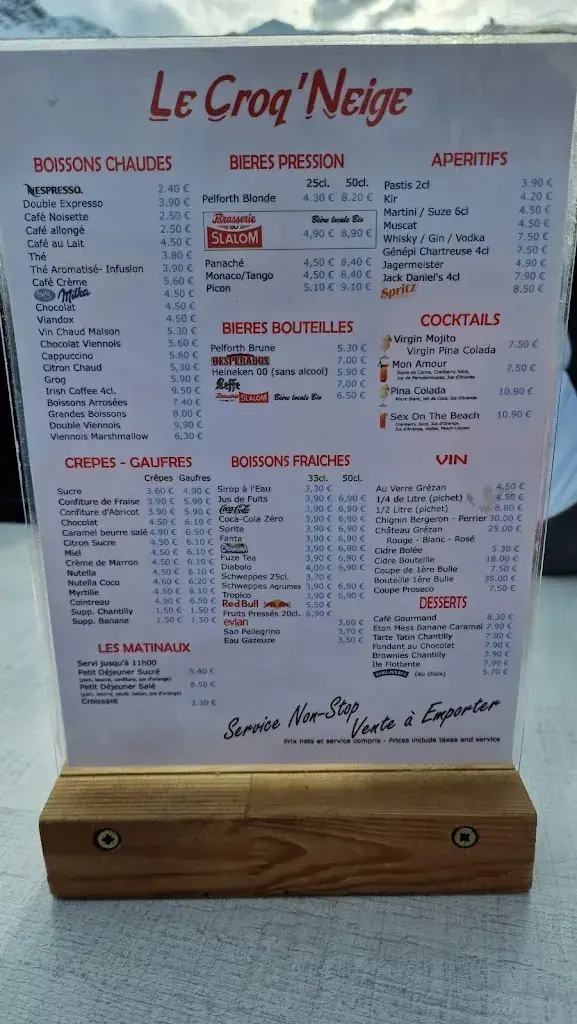 LE CROQ'NEIGE
BOISSONS CHAUDES
NESPRESSO. 2.40 €
Double Expresso 3.90 €
Café Noisette 2.50 €
Café allongé 2.50 €
Café au Lait 4.50 €
Thé 3.80 €
Thé Aromatisé- Infusion 3.90 €
Café Crème 5.60 €
Milka 4.50 €
Chocolat 4.50 €
Viandox 4.50 €
Vin Chaud Maison 5.30 €
Chocolat Viennois 5.60 €
Cappuccino 5.60 €
Citron Chaud 5,30 €
Grog 5.90 €
Irish Coffee 4cl. 9.50 €
Boissons Arrosées 7.40 €
Grandes Boissons 8.00 €
Double Viennois 9.90 €
Viennois Marshmallow 6,30 €
BIERES PRESSION
25cl. 50cl.
Pelforth Blonde 4.30 € 8.20 €
Brasserie DU SLALOM Bière locale Bio 4,90 € 8,90 €
Panaché 4,50 € 8,40 €
Monaco/Tango 4,50 € 8,40 €
Picon 5.10 € 9.10 €
BIERES BOUTEILLES
Pelforth Brune 5.30 €
DESPERADOS 7.00 €
Heineken 00 (sans alcool) 5.90 €
Leffe 7.00 €
Brasserie DU SLALOM Bière locale Bio 6.50 €
APERITIFS
Pastis 2cl 3.90 €
Kir 4.20 €
Martini / Suze 6cl 4.50 €
Muscat 4.50 €
Whisky / Gin / Vodka 7.50 €
Génépi Chartreuse 4cl 7.50 €
Jagermeister 4.90 €
Jack Daniel's 4cl 7.90 €
Spritz 8.50 €
COCKTAILS
Virgin Mojito
Virgin Pina Colada 7.50 €
Mon Amour 7.50 €
Sucre de Canne, Cranberry Juice,
Jus de Pamplemousse, Jus d'Ananas
Pina Colada 10.90 €
Rhum Blanc, lait de Coco, Jus d'Ananas
Sex On The Beach 10.90 €
Cranberry Juice, Jus d'Orange,
Jus d'Ananas, Vodka, Peach Liqueur
CREPES - GAUFRES
Crêpes Gaufres
Sucre 3.60 € 4.90 €
Confiture de Fraise 3.90 € 5.90 €
Confiture d'Abricot 3.90 € 5.90 €
Chocolat 4.50 € 6.10 €
Caramel beurre salé 4.90 € 6.50 €
Citron Sucre 4.50 € 6.10 €
Miel 4.50 € 6.10 €
Crème de Marron 4.50 € 6.10 €
Nutella 4.50 € 6.10 €
Nutella Coco 4.60 € 6.20 €
Myrtille 4.50 € 6.10 €
Cointreau 4.90 € 6.50 €
Supp. Chantilly 1.50 € 1.50 €
Supp. Banane 1.50 € 1.50 €
LES MATINAUX
Servi jusqu'à 11h00
Petit Déjeuner Sucré 5.40 €
(pain, beurre, confiture, jus d'orange)
Petit Déjeuner Salé 8.50 €
(pain, beurre, oeufs, bacon, jus d'orange)
Croissant 2.30 €
BOISSONS FRAICHES
33cl. 50cl.
Sirop à l'Eau 3,30 €
Jus de Fuits 3,90 € 6,90 €
Coca-Cola 3,90 € 6,90 €
Coca-Cola Zéro 3,90 € 6,90 €
Sprite 3,90 € 6,90 €
Fanta 3,90 € 6,90 €
3,90 € 6,90 €
Fuze Tea 3,90 € 6,90 €
Diabolo 4,00 € 6,90 €
Schweppes 25cl. 3,70 €
Schweppes Agrumes 3,90 € 6,90 €
Tropico 3,90 € 6,90 €
Red Bull 5,50 €
Fruits Pressés 20cl. 6,90 €
evian 3,60 €
San Pellegrino 3,70 €
Eau Gazeuze 3,50 €
VIN
Au Verre Grézan 4.50 €
1/4 de Litre (pichet) 4.50 €
1/2 Litre (pichet) 8.80 €
Chignin Bergeron - Perrier 30.00 €
Château Grézan 25.00 €
Rouge - Blanc - Rosé
Cidre Bolée 5.30 €
Cidre Bouteille 18.00 €
Coupe de 1ère Bulle 7.50 €
Bouteille 1ère Bulle 35.00 €
Coupe Proseco 7.50 €
DESSERTS
Café Gourmand 8.30 €
Eton Mess Banane Caramel 7.90 €
Tarte Tatin Chantilly 7.90 €
Fondant au Chocolat 7.90 €
Brownies Chantilly 7.90 €
Ile Flottente 7,90 €
(au choix) 5.70 €
Service Non-Stop
Vente à Emporter
Prix nets et service compris - Prices include taxes and service